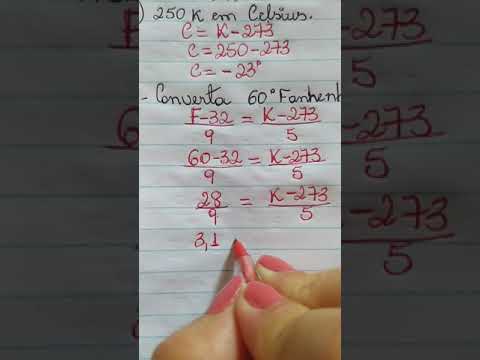 ) 250 K em Celsius.
C = K - 273
C = 250 - 273
C = - 23°
- Converta 60° Fanhenh
F - 32 / 9 = K - 273 / 5
60 - 32 / 9 = K - 273 / 5
28 / 9 = K - 273 / 5
3,1